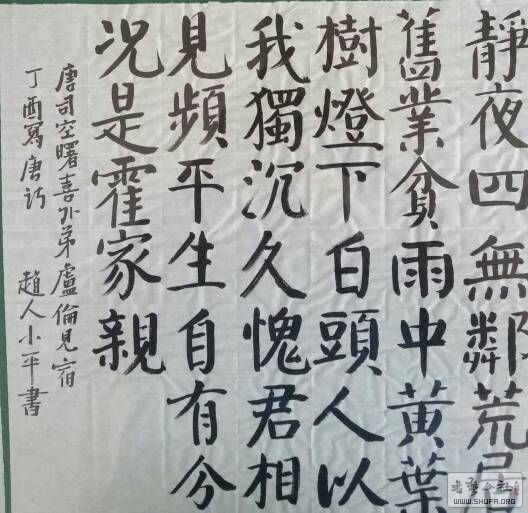 靜夜四無鄰荒居
舊業貧雨中黃葉
樹燈下白頭人以
我獨沉久愧君相
見頻平生自有分
况是霍家親
唐司空曙喜外弟盧倫見宿
丁酉寫唐詩 趙人小平書
書藝公社
WWW.SHUFA.ORG